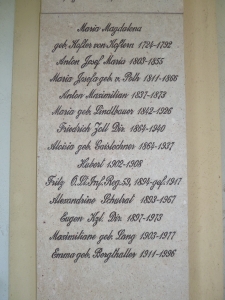 Maria Magdalena
geb. Hofler von Hoflern 1724-1792
Anton Josef Maria 1803-1855
Maria Josefa geb. v. Poth 1811-1868
Anton Maximilian 1837-1873
Maria geb. Lindlbauer 1842-1926
Friedrich Zoll Dir. 1864-1940
Aloisia geb. 1864-1937
Hubert 1902-1908
Fritz Inf. Reg. 59, 1894-gef. 1917
Alexandrine 1893-1967
Eugen Kzl. Dir. 1897-1973
Maximiliane geb. Lang 1903-1977
Emma geb. Bergthaller 1911-1996